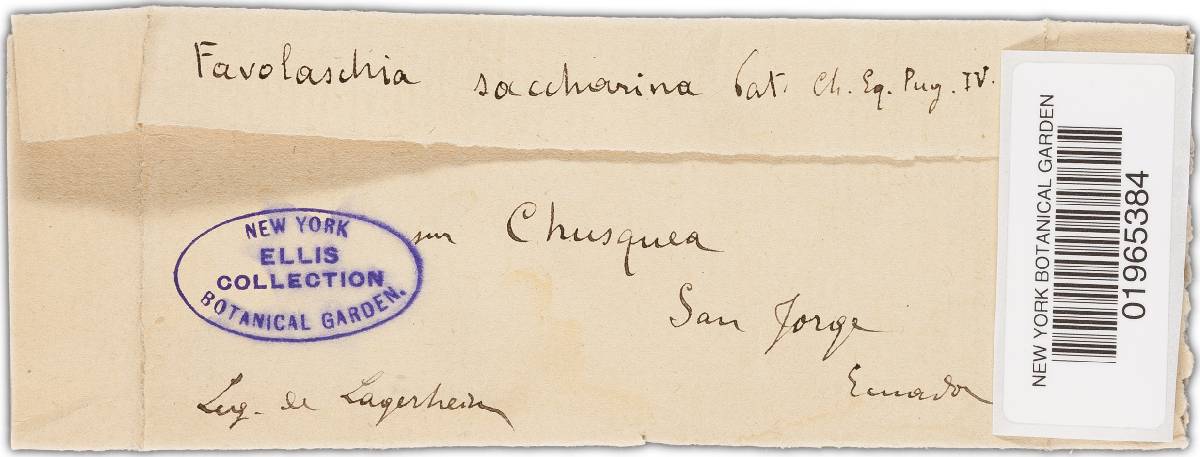 Favolaschia saccharina Pat. Ch. Eq. Pug. IV.
NEW YORK
ELLIS
COLLECTION
BOTANICAL GARDEN.
sur Chusquea
San Jorge
Ecuador
Leg. de Lagerheim
NEW YORK BOTANICAL GARDEN
01965384